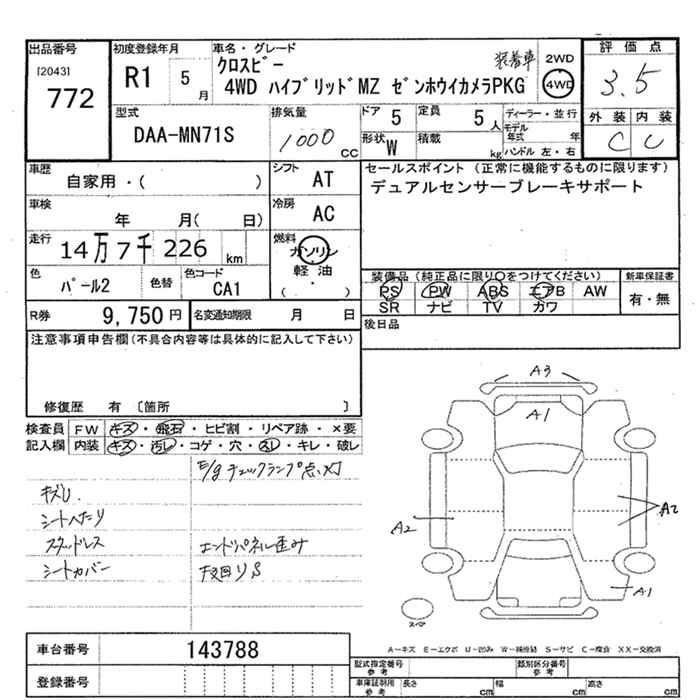 出品番号
[2043]
772
初度登録年月
R1 5月
車名・グレード
クロスビー 装着車
4WD ハイブリッドMZ ゼンホウイカメラPKG
2WD
4WD
評価点
3.5
外装 内装
C C
型式
DAA-MN71S
排気量
1000 cc
ドア 5
定員 5人
形状 W
積載 kg
ディーラー・並行
モデル年式 年
ハンドル 左・右
車歴
自家用・( )
シフト AT
車検
年 月( 日)
冷房 AC
走行
14万7千226 km
燃料
ガソリン
軽油
( ・ )
色
パール2
色替
色コード
CA1
R券 9,750円
名変通知期限 月 日
セールスポイント (正常に機能するものに限ります)
デュアルセンサーブレーキサポート
装備品 (純正品に限り○をつけてください)
PS PW ABS エアB AW
SR ナビ TV カワ
新車保証書
有・無
後日品
注意事項申告欄(不具合内容等は具体的に記入して下さい)
修復歴 有 〔箇所 〕
検査員 FW キズ・飛石・ヒビ割・リペア跡・×要
記入欄 内装 キズ・汚レ・コゲ・穴・スレ・キレ・破レ
E/gチェックランプ点灯
キズし
シートへたり
スタッドレス
エンドパネル歪み
シートカバー
A3
A1
A2
A2
A1
スペア
A－キズ E－エクボ U－凹み W－補修跡 S－サビ C－腐食 XX－交換済
車台番号 143788
登録番号
型式指定番号 参考
類別区分番号 参考
車庫証明用 参考 長さ cm 幅 cm 高さ cm